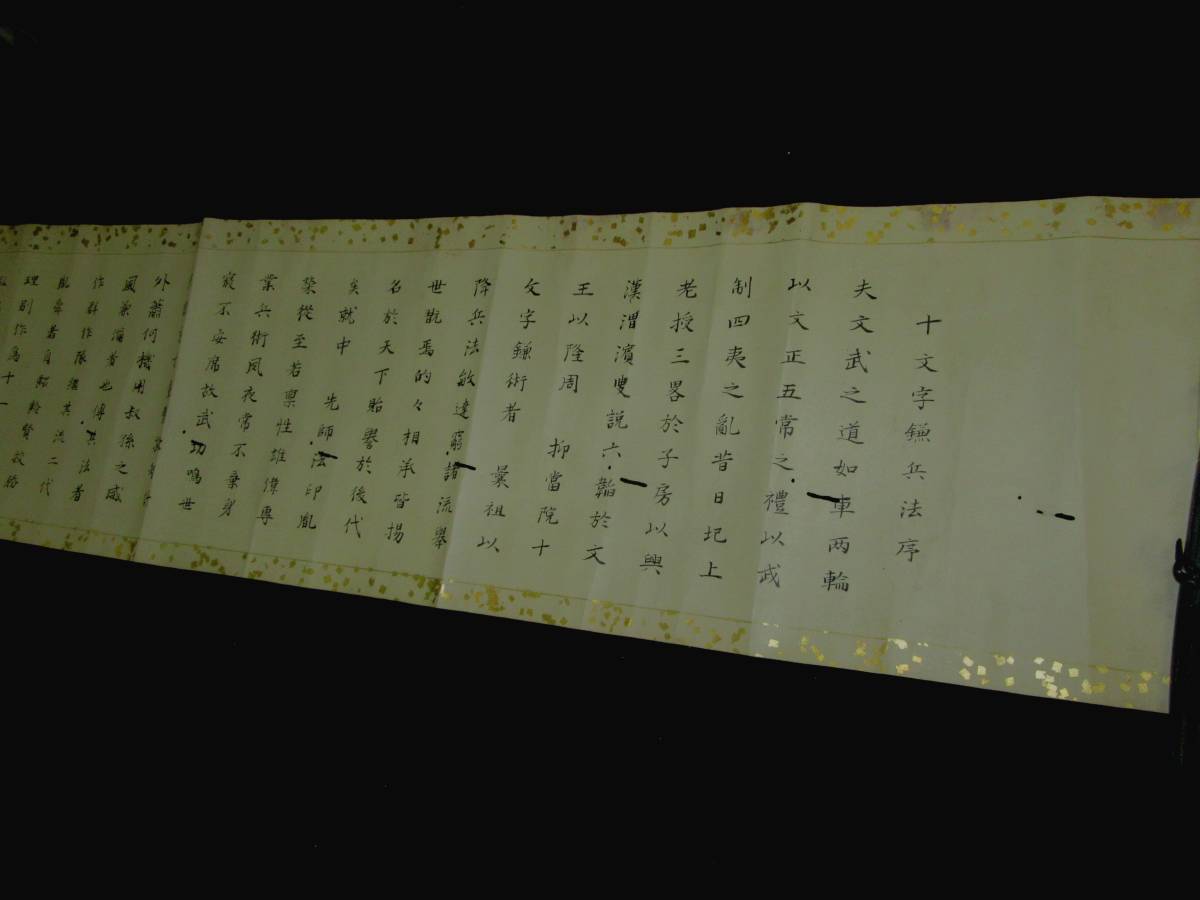 十文字鎌兵法序
夫文武之道如車両輪
以文正五常之禮以武
制四夷之亂昔日圯上
老授三畧於子房以興
漢渭濱叟説六韜於文
王以隆周 抑當院十
文字鎌術者 曩祖以
降兵法敏達窮諸流舉
世翫焉的々相承皆揚
名於天下貽譽於後代
矣就中 先師法印胤
榮從至若稟性雄偉専
業兵術夙夜常不棄躬
寢不安席故武功鳴世
外蕭何機用叔孫之威
國兼備者也傳其法者
作群作隊撰其
流二代
理別作為十一